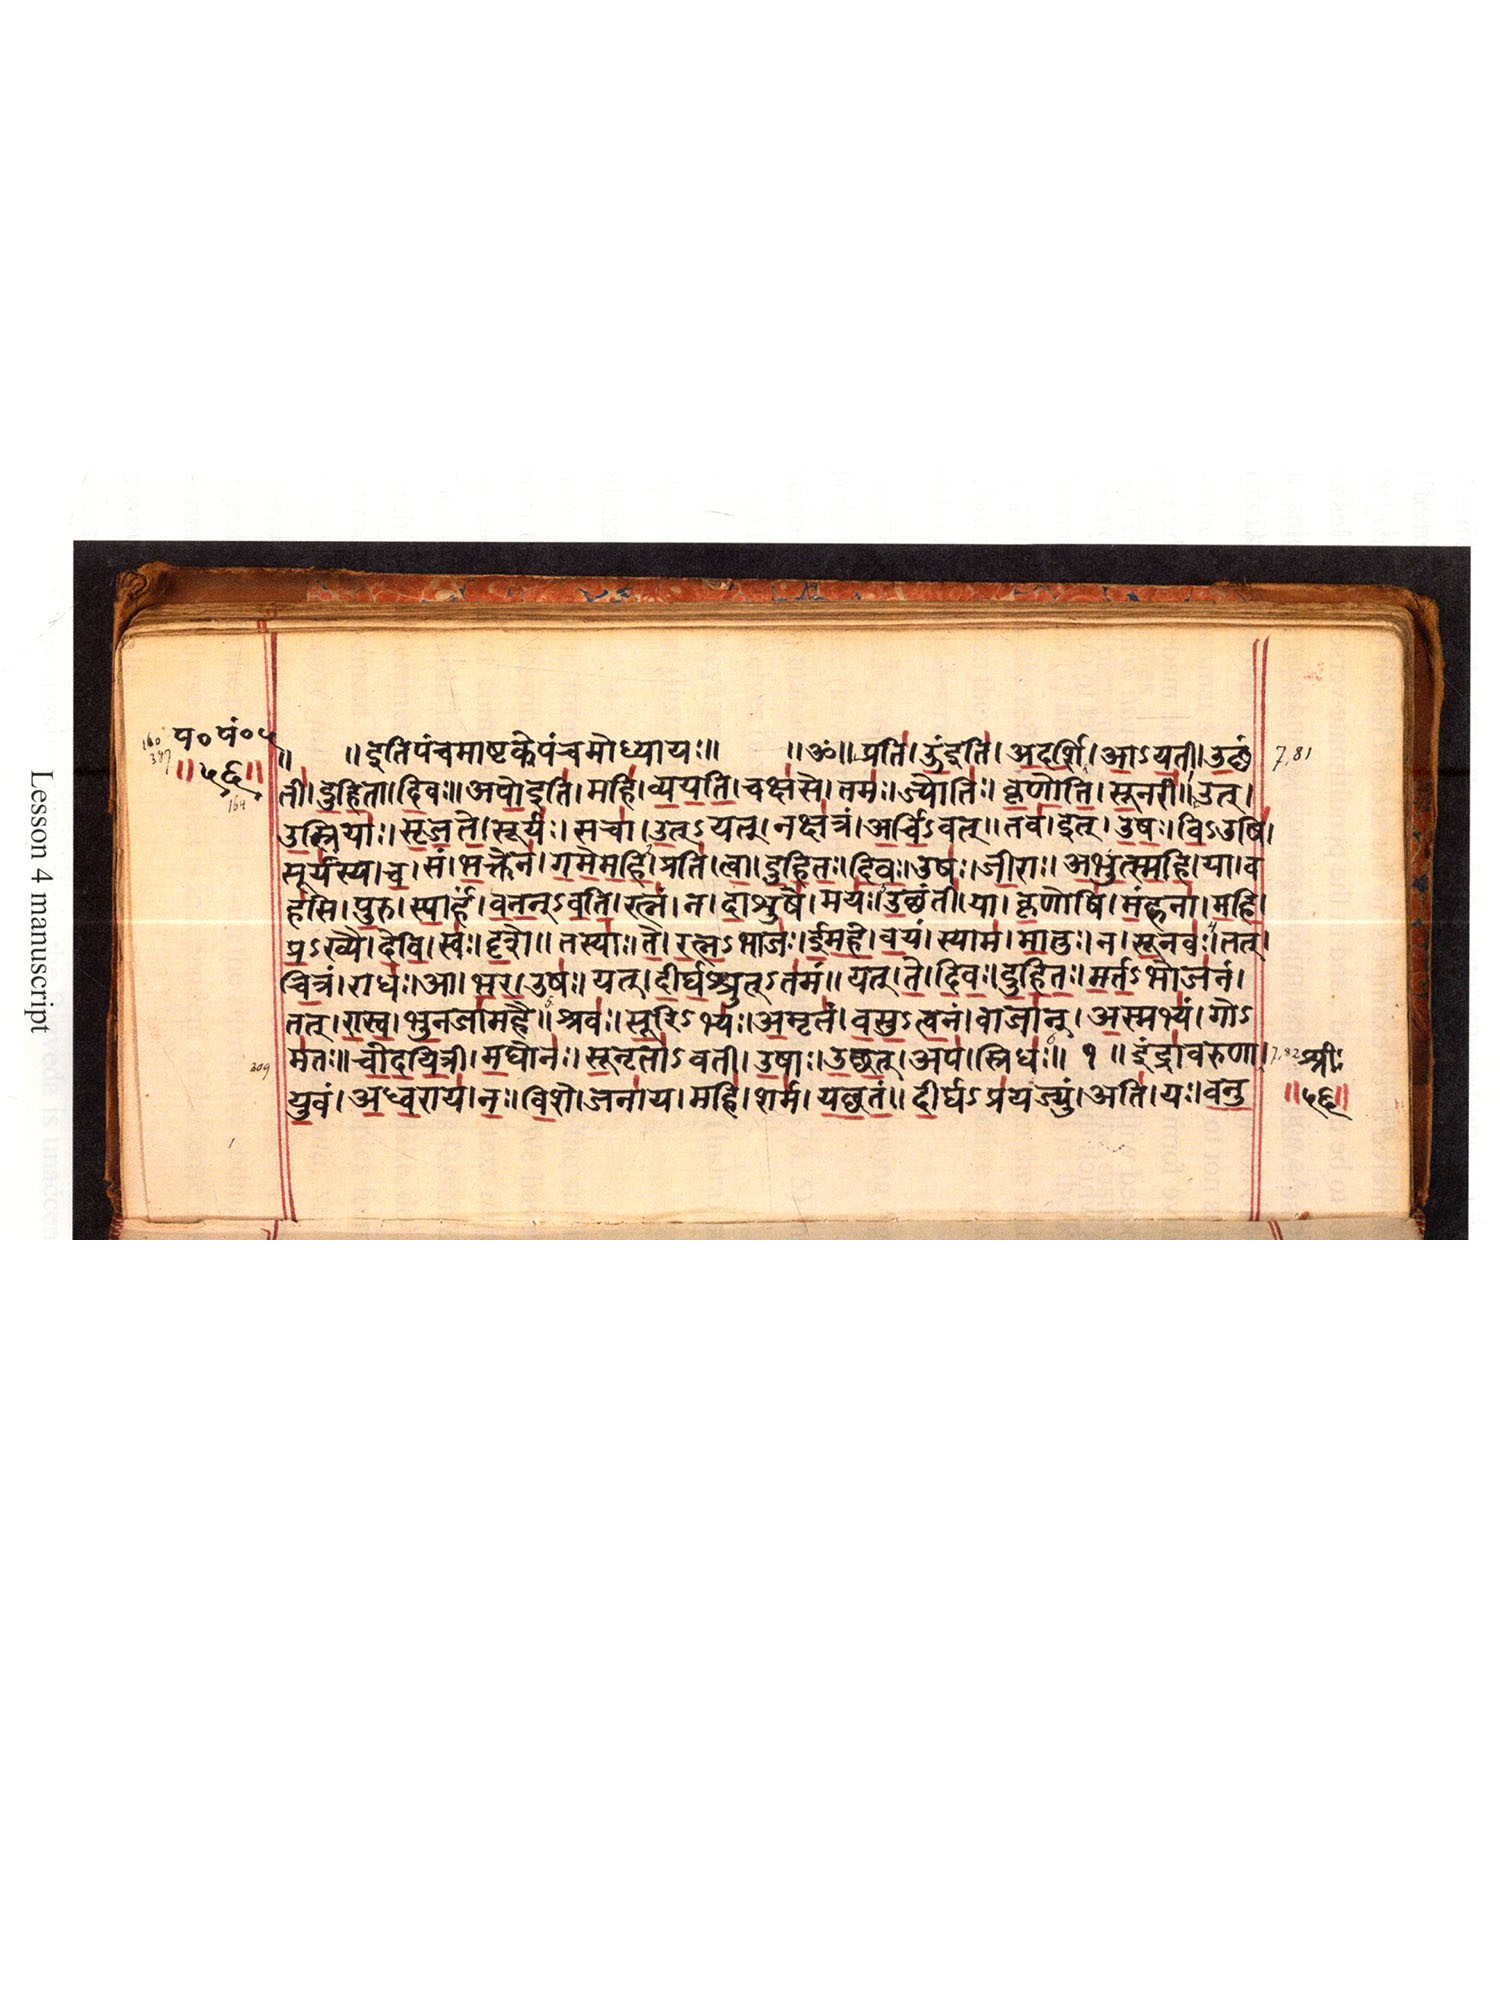 Lesson 4 manuscript
प०पं०५
॥५६॥
164
॥ ॥इतिपंचमाष्टकेपंचमोध्यायः॥ ॥ॐ॥प्रति॑।ऊं॒इति॑।अ॒द॒र्शि॒।आ॒ऽय॒ती।उ॒छं
ती॑।दु॒हि॒ता।दि॒वः॥अपो॒इति॑।महि॑।व्य॒य॒ति॒।चक्ष॑से।तमः॑।ज्योतिः॑।कृ॒णो॒ति॒।सू॒नरी॑॥उत्।
उ॒स्रियाः॑।सृ॒ज॒ते॒।सूर्यः॑।सचा॑।उ॒त्ऽयत्।नक्ष॑त्रं।अ॒र्चि॒ऽवत्॥तव॑।इत्।उ॒षः॒।वि॒ऽउषि॑।
सूर्य॑स्य।च॒।सं।भ॒क्तेन॑।ग॒मे॒म॒हि॒॥प्रति॑।त्वा॒।दु॒हि॒तः॒।दि॒वः॒।उषः॑।जी॒राः।अ॒भु॒त्स्म॒हि॒॥या।व
ह॑सि।पु॒रु।स्पा॒र्हं।व॒न॒न्ऽव॒ति॒।रत्नं॑।न।दा॒शुषे॑।मयः॑॥उ॒छंती॑।या।कृ॒णोषि॑।मं॒हना॑।म॒हि॒।
प्र॒ऽख्यै।दे॒वि॒।स्वः॑।दृ॒शे॥तस्याः॑।ते॒।र॒त्न॒ऽभाजः॑।ई॒म॒हे॒।व॒यं।स्याम॑।मा॒तुः।न।सू॒नवः॑॥तत्।
चि॒त्रं।राधः॑।आ।भ॒र॒।उषः॑।यत्।दी॒र्घ॒श्रुत्ऽत॑मं॥यत्।ते॒।दि॒वः॒।दु॒हि॒तः॒।म॒र्त॒ऽभोज॑नं।
तत्।रा॒स्व॒।भु॒नजा॑महै॥श्रवः॑।सू॒रिऽभ्यः॑।अ॒मृतं॑।व॒सु॒ऽत्व॒नं।वाजा॑न्।अ॒स्मभ्यं॑।गोऽ
म॑तः॥चो॒द॒यि॒त्री।म॒घोनः॑।सू॒नृता॑ऽवती।उ॒षाः।उ॒छ॒त्।अप॑।स्रिधः॑॥ १ ॥इंद्रा॑वरुणा।
यु॒वं।अ॒ध्व॒राय॑।नः॒।वि॒शे।जना॑य।महि॑।शर्म॑।य॒छ॒तं॒॥दी॒र्घऽप्र॑यज्युं।अति॑।यः।व॒नु॒
7,81
7,82
श्रीः
॥५६॥
309